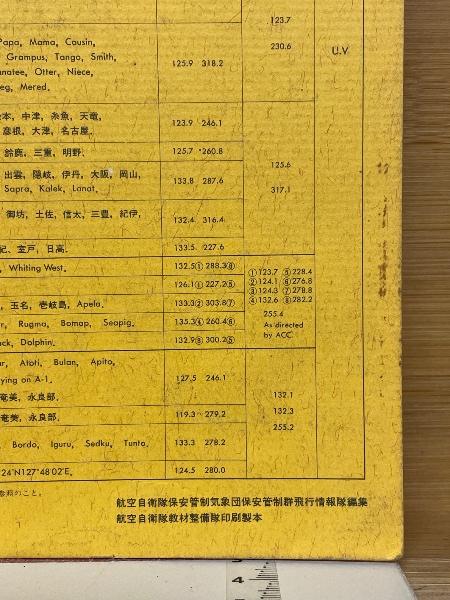 123.7
Papa, Mama, Cousin,
230.6
Grampus, Tango, Smith,
U.V
anatee, Otter, Niece,
125.9 318.2
eg, Mered.
本, 中津, 糸魚, 天竜,
123.9 246.1
彦根, 大津, 名古屋.
鈴鹿, 三重, 明野.
125.7 260.8
125.6
出雲, 隠岐, 伊丹, 大阪, 岡山,
133.8 287.6
Sapra, Kalek, Lanat.
317.1
御坊, 土佐, 信太, 三豊, 紀伊,
132.4 316.4
紀, 室戸, 日高.
133.5 227.6
, Whiting West.
132.5① 288.3⑥
①123.7 ⑤228.4
126.1① 227.2⑤
②124.1 ⑥276.8
, 玉名, 壱岐島, Apela.
133.3② 303.8⑦
③124.3 ⑦278.8
④132.6 ⑧282.2
r, Rugma, Bomap, Seapig.
135.3④ 260.4⑧
255.4
As directed
ck, Dolphin.
132.9③ 300.2⑤
by ACC.
ur, Atoti, Bulan, Apito,
ying on A-1.
127.5 246.1
奄美, 永良部.
132.1
奄美, 永良部.
119.3 279.2
132.3
255.2
, Bordo, Iguru, Sedku, Tunto.
133.3 278.2
24'N127°48'02"E.
124.5 280.0
参照のこと。
航空自衛隊保安管制気象団保安管制群飛行情報隊編集
航空自衛隊教材整備隊印刷製本
4